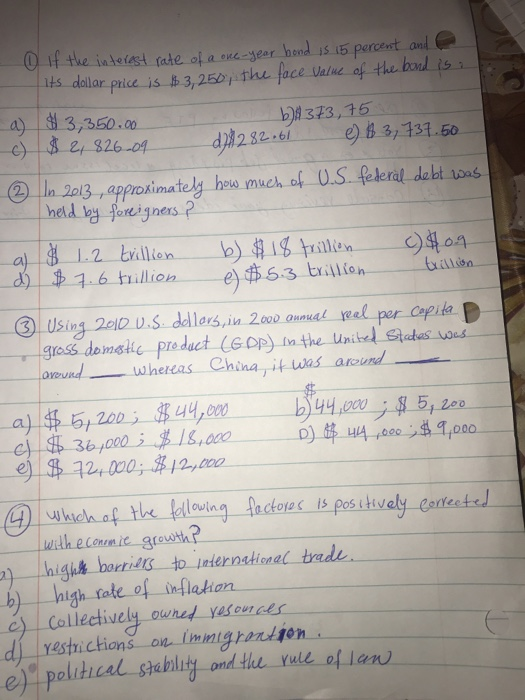 ① If the interest rate of a one-year bond is 15 percent and
its dollar price is $ 3,250, the face value of the bond is:
a) $ 3,350.00 b) $ 373,75
c) $ 2, 826-09 d) $282.61 e) $ 3,737.50
② In 2013, approximately how much of U.S. federal debt was
held by foreigners?
a) $ 1.2 trillion b) $ 18 trillion c) $0.9 trillion
d) $ 7.6 trillion e) $5.3 trillion
③ Using 2010 U.S. dollars, in 2000 annual real per capita
gross domestic product (GDP) in the United States was
around ___ whereas China, it was around ___
a) $ 5,200 ; $44,000 b) $44,000 ; $ 5,200
c) $ 36,000 ; $ 18,000 D) $ 44,000 ; $ 9,000
e) $ 72,000; $12,000
④ which of the following factores is positively corrected
with economic growth?
a) high barriers to international trade.
b) high rate of inflation
c) collectively owned resources
d) restrictions on immigration.
e) political stability and the rule of law